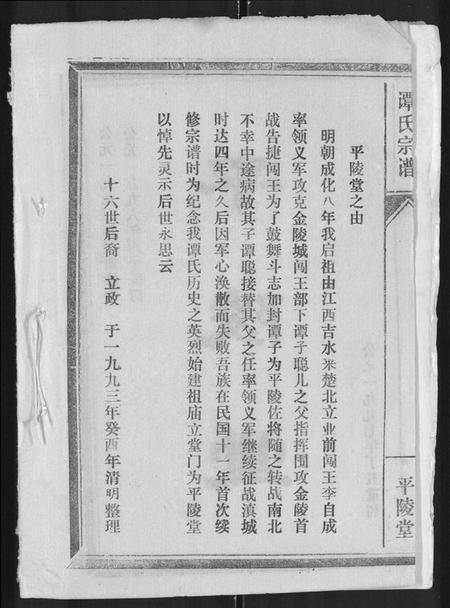 谭氏宗谱
平陵堂
平陵堂之由
明朝成化八年我启祖由江西吉水来楚北立业前闯王李自成
率领义军攻克金陵城闯王部下谭子聪儿之父指挥围攻金陵首
战告捷闯王为了鼓舞斗志加封谭子为平陵佐将随之转战南北
不幸中途病故其子谭聪接替其父之任率领义军继续征战滇城
时达四年之久后因军心涣散而失败吾族在民国十一年首次续
修宗谱时为纪念我谭氏历史之英烈始建祖庙立堂门为平陵堂
以悼先灵示后世永思云
十六世后裔 立政 于一九九三年癸酉年清明整理